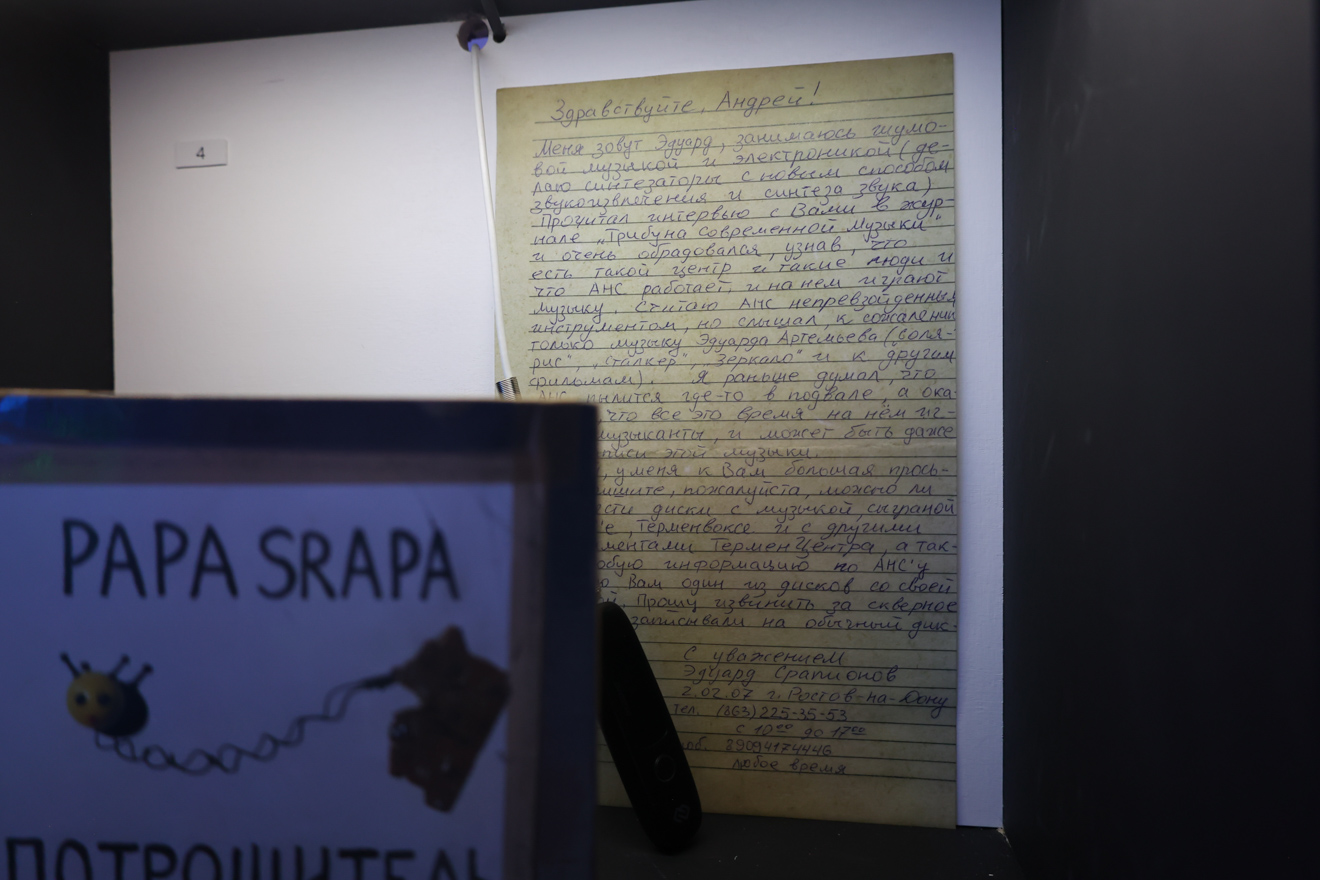 4
Здравствуйте, Андрей!
Меня зовут Эдуард, занимаюсь шумо-
вой музыкой и электроникой (де-
лаю синтезаторы с новым способом
звукоизвлечения и синтеза звука)
Прочитал интервью с Вами в жур-
нале „Трибуна современной Музыки"
и очень обрадовался, узнав, что
есть такой центр и такие люди и
что АНС работает и на нем играют
музыку. Считаю АНС непревзойденным
инструментом, но слышал, к сожалению
только музыку Эдуарда Артемьева („Соля-
рис", „Сталкер", „Зеркало" и к другим
фильмам). Я раньше думал, что
АНС пылится где-то в подвале, а ока-
что все это время на нём иг-
музыканты, и может быть даже
писи этой музыки.
у меня к Вам большая прось-
ишите, пожалуйста, можно ли
сти диски с музыкой сыграной
е, Терменвоксе и с другими
ментами Термен Центра, а так-
обую информацию по АНС'у
ю Вам один из дисков со своей
й. Прошу извинить за скверное
записывали на обычный дик-
С уважением
Эдуард Срапионов
2.02.07 г. Ростов-на-Дону
тел. (863) 225-35-53
с 1000 до 1700
об. 89094174446
любое время
PAPA SRAPA
ПОТРОШИТЕЛЬ